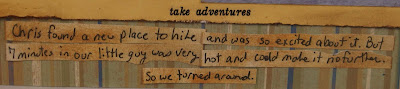 take adventures
Chris found a new place to hike and was so excited about it. But
7 minutes in our little guy was very hot and could make it no further.
So we turned around.